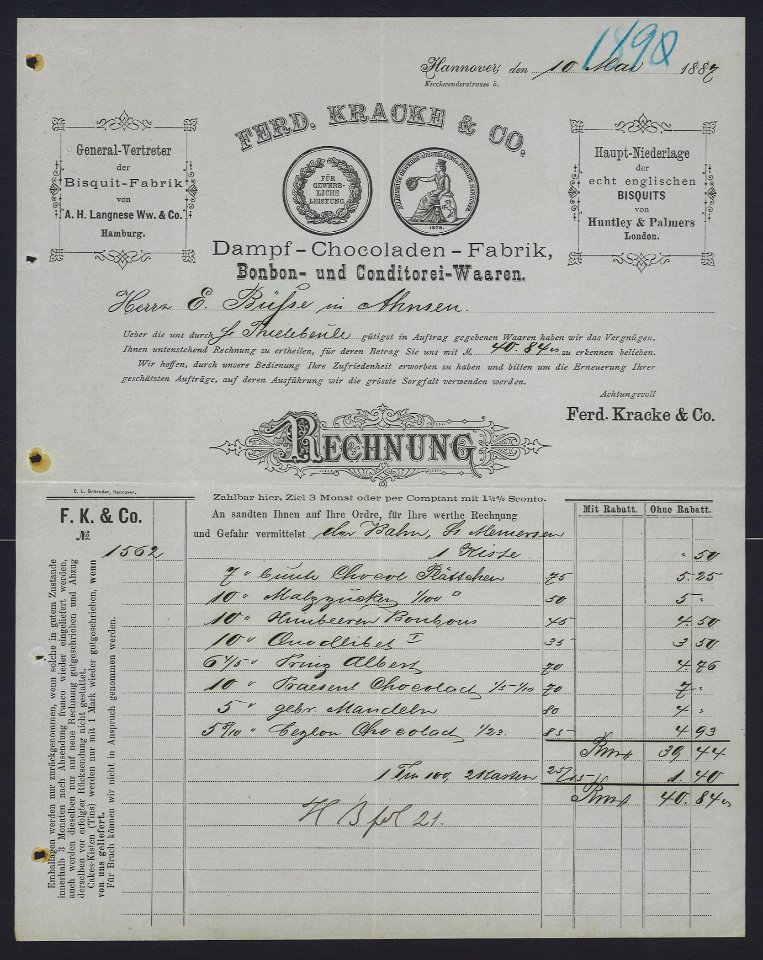 1890
Hannover, den 10 Mai 1887
Kirchwenderstrasse 5.
FERD. KRACKE & CO.
General-Vertreter
der
Bisquit-Fabrik
von
A. H. Langnese Ww. & Co.
Hamburg.
FÜR
GEWERB-
LICHE
LEISTUNG
1878.
Haupt-Niederlage
der
echt englischen
BISQUITS
von
Huntley & Palmers
London.
Dampf-Chocoladen-Fabrik,
Bonbon- und Conditorei-Waaren.
Herrn E. Büsse in Ahnsen.
Ueber die uns durch Hr Thielebeule gütigst in Auftrag gegebenen Waaren haben wir das Vergnügen,
Ihnen untenstehend Rechnung zu ertheilen, für deren Betrag Sie uns mit M. 40.84 zu erkennen belieben.
Wir hoffen, durch unsere Bedienung Ihre Zufriedenheit erworben zu haben und bitten um die Erneuerung Ihrer
geschätzten Aufträge, auf deren Ausführung wir die grösste Sorgfalt verwenden werden.
Achtungsvoll
Ferd. Kracke & Co.
RECHNUNG
C. L. Schrader, Hannover.
Zahlbar hier, Ziel 3 Monat oder per Comptant mit 1½% Sconto.
F. K. & Co.
№
1562
An sandten Ihnen auf Ihre Ordre, für Ihre werthe Rechnung
und Gefahr vermittelst der Bahn, St Meinersen
Mit Rabatt. Ohne Rabatt.
1 Kiste " 50
7 " bunte Chocol Plättchen 75 5. 25
10 " Malzzucker 1/100 " 50 5 "
10 " Himbeeren Bonbons 45 4. 50
10 " Quodlibet I 35 3 50
6 4/5 " Prinz Albert 70 4. 76
10 " Praesent Chocolad 1/5-1/10 70 7 "
5 " gebr. Mandeln 80 4 "
5 8/10 " Ceylon Chocolad 1/23. 85 4 93
39, 44
1 Tin 100, 2 Kasten 25/15 1. 40
40. 84
H B fol 21.
Emballagen werden nur zurückgenommen, wenn solche in gutem Zustande
innerhalb 3 Monaten nach Absendung franco wieder eingeliefert werden,
auch werden dieselben nur auf neue Rechnung gutgeschrieben und Abzug
derselben vor erfolgter Rücksendung nicht gestattet.
Cakes-Kisten (Tins) werden nur mit 1 Mark wieder gutgeschrieben, wenn
von uns geliefert.
Für Bruch können wir nicht in Anspruch genommen werden.